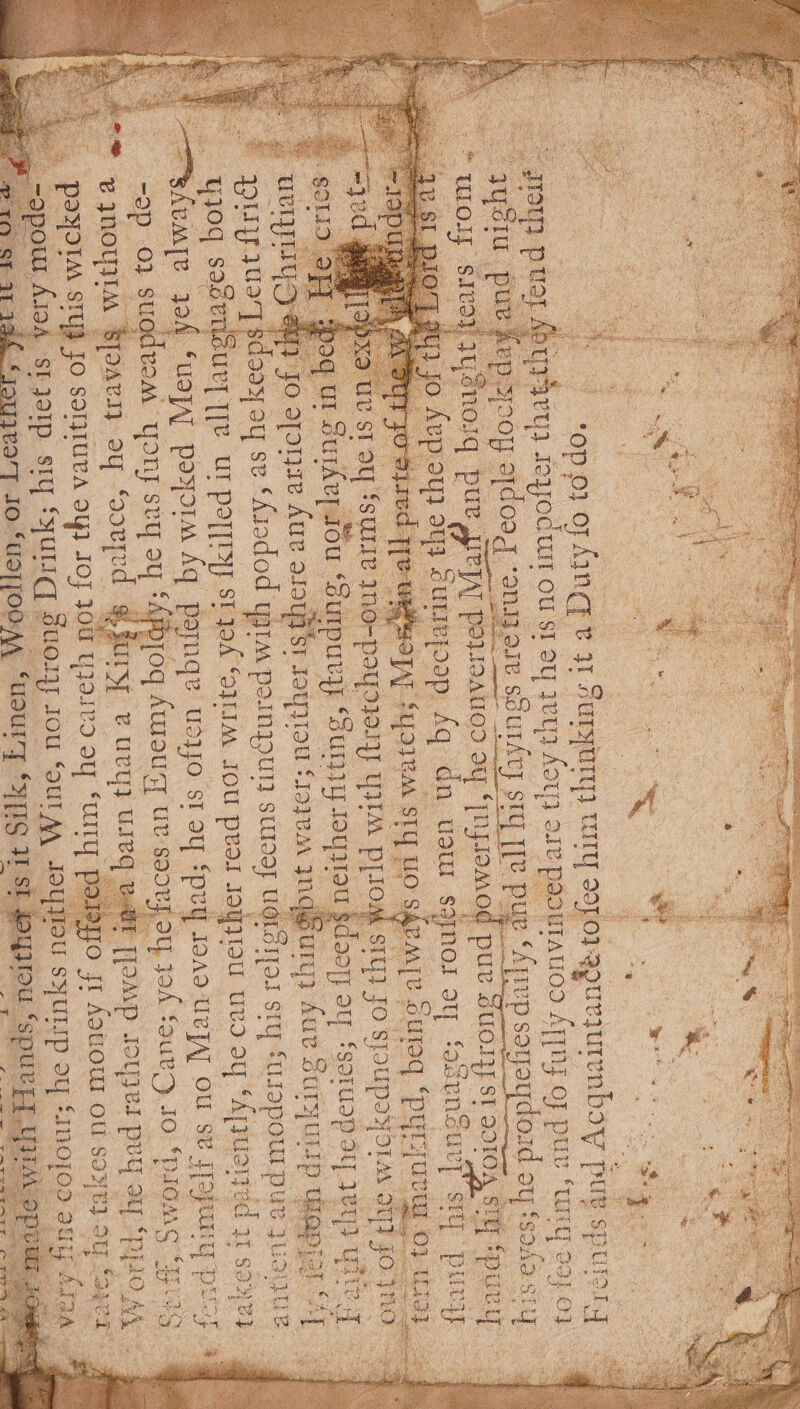 made with Hands, neither is it Silk, Linen, Woollen, or Leather, yet it is of a
very fine colour; he drinks neither Wine, nor ſtrong Drink; his diet is very mode-
rate, he takes no money if offered him, he careth not for the vanities of this wicked
World, he had rather dwell in a barn than a King's palace, he travels without a
Staff, Sword, or Cane; yet he faces an Enemy boldly; he has ſuch weapons to de-
fend himſelf as no Man ever had; he is often abuſed by wicked Men, yet always
takes it patiently, he can neither read nor write, yet is ſkilled in all languages both
antient and modern; his religion ſeems tinctured with popery, as he keeps Lent ſtrict
ly, ſeldom drinking any thing but water; neither is there any article of the Chriſtian
Faith that he denies; he ſleeps neither ſitting, ſtanding, nor laying in bed; He cries
out of the wickedneſs of this world with ſtretched-out arms; he is an excellent pat-
tern to mankind, being always on his watch; in all parts of the World under-
ſtand his language; he rouſes men up by declaring the day of the Lord is at
hand; his voice is ſtrong and powerful, he converted Man and brought tears from
his eyes; he propheſies daily, and all his ſayings are true. People flock day and night
to ſee him, and ſo fully convinced are they that he is no impoſter that they ſend their
Friends and Acquaintance to ſee him thinking it a Duty ſo to do.